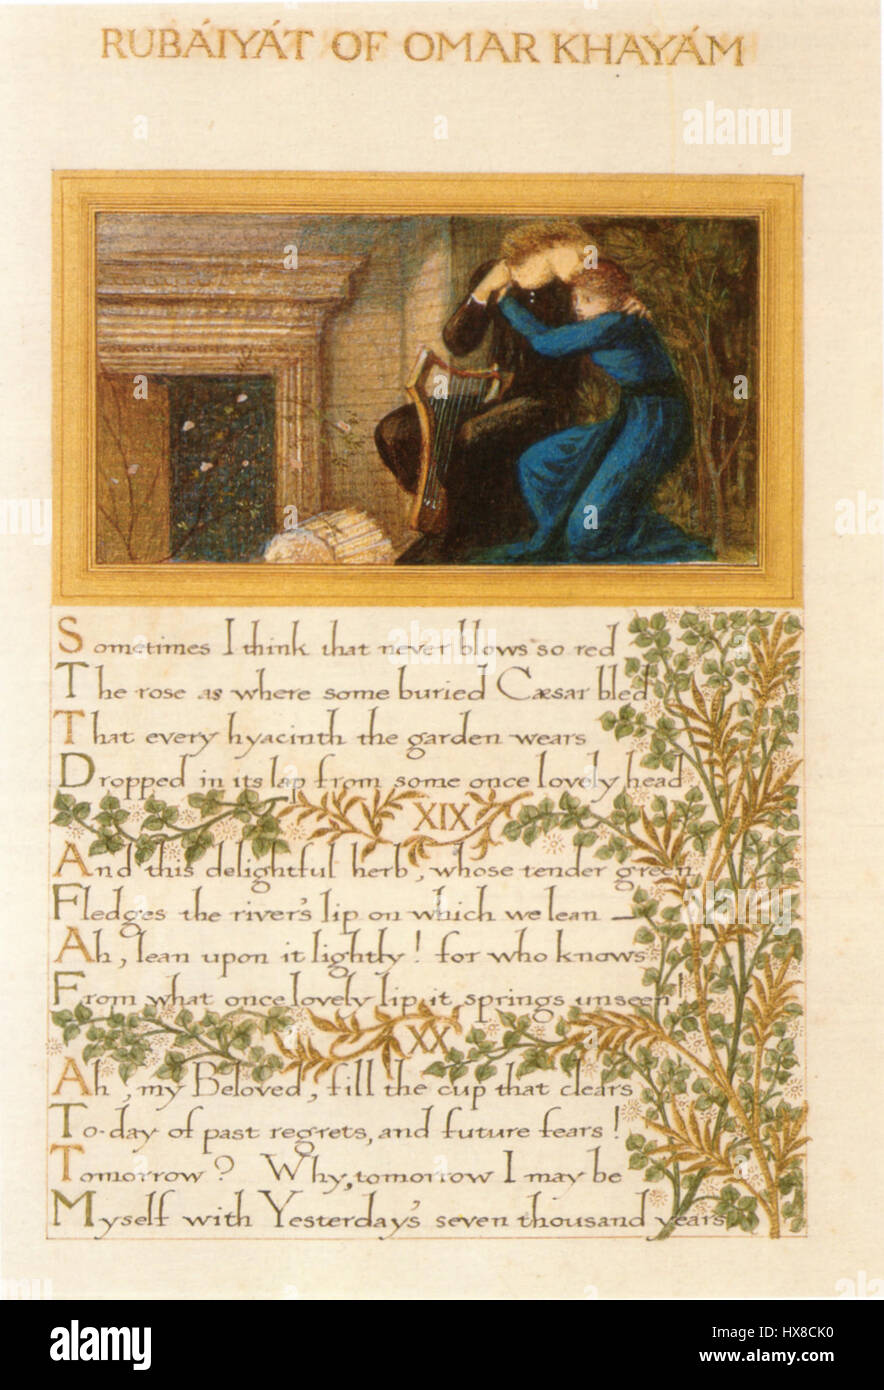 RUBÁIYÁT OF OMAR KHAYÁM
Sometimes I think that never blows so red
The rose as where some buried Cæsar bled
That every hyacinth the garden wears
Dropped in its lap from some once lovely head
XIX
And this delightful herb, whose tender green
Fledges the river's lip on which we lean —
Ah, lean upon it lightly! for who knows
From what once lovely lip it springs unseen!
XX
Ah, my Beloved, fill the cup that clears
To-day of past regrets, and future fears!
Tomorrow? Why, tomorrow I may be
Myself with Yesterday's seven thousand years
alamy
Image ID: HX8CK0
www.alamy.com